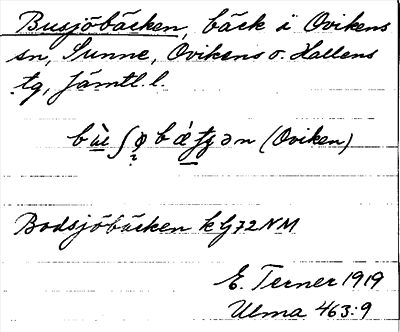 Busjöbäcken, bäck i Ovikens
sn, Sunne, Ovikens o. Hallens
tg, Jämtl. l.
(Oviken)
Bodsjöbäcken kG72NM
E. Terner 1919
Ulma 463:9